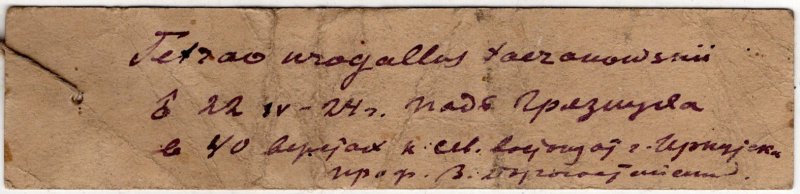 Tetrao urogallus taczanowskii
♂ 22 IV-24 г. падь Грязнуха
в 40 верстах к сев. востоку от г. Иркутска
проф. В.